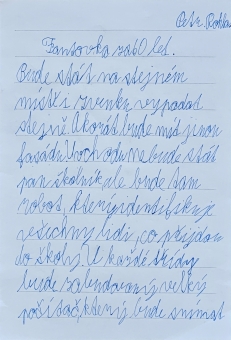 Petr
Fantovka za 60 let.
Bude stát na stejném
místě i zvenku vypadat
stejně. Akorát bude mít jinou
fasádu. U vchodu nebude stát
pan školník, ale bude tam
robot, který identifikuje
všechny lidi, co přijdou
do školy. U každé třídy
bude zabudovaný velký
počítač, který bude snímat